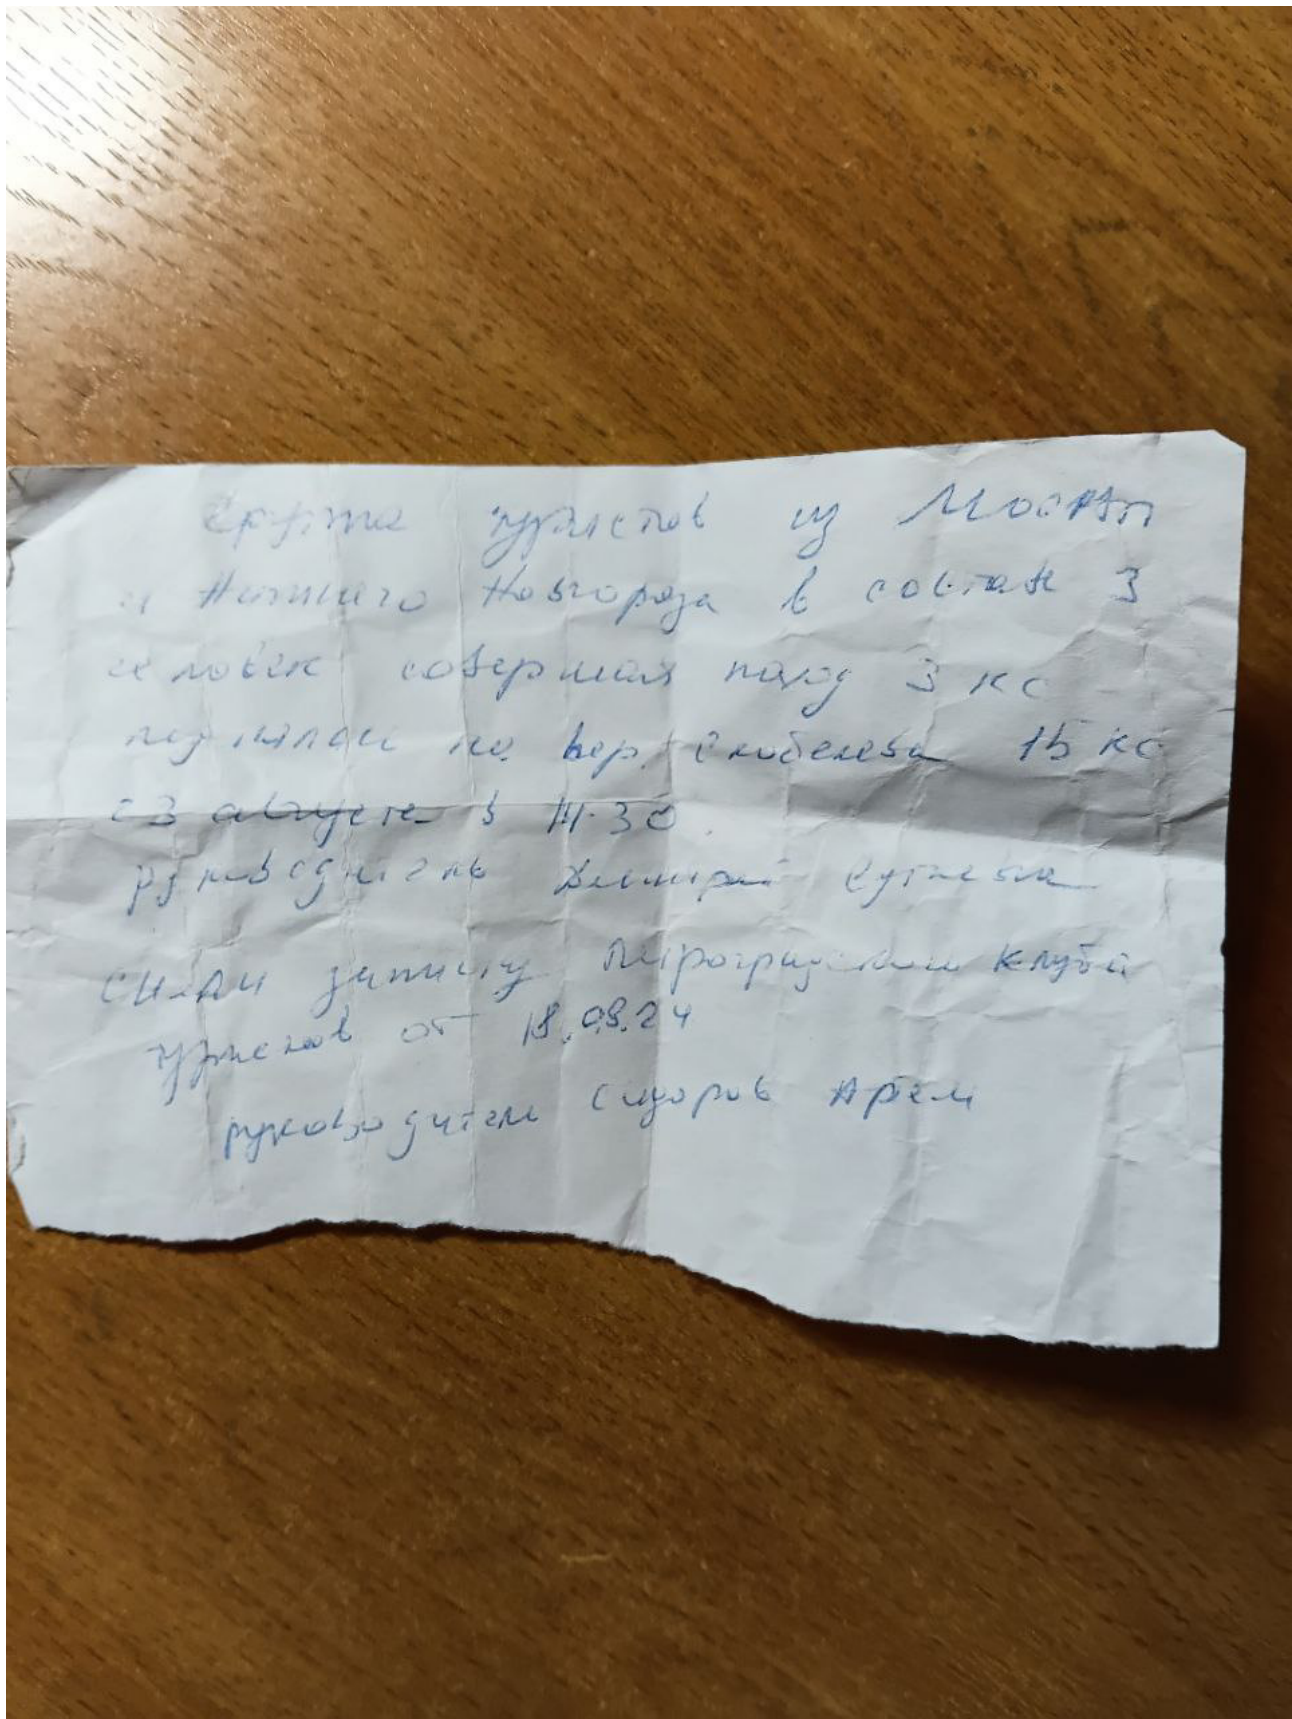 Группа туристов из Москвы
и Нижнего Новгорода в составе 3
человек совершая поход 3 кс
поднялась на вер. Скобелева 1Б кс
августа в 30
руководитель Дмитрий
Сняли записку Петроградского клуба
туристов от 18.08.24
руководитель Сидоров Артём